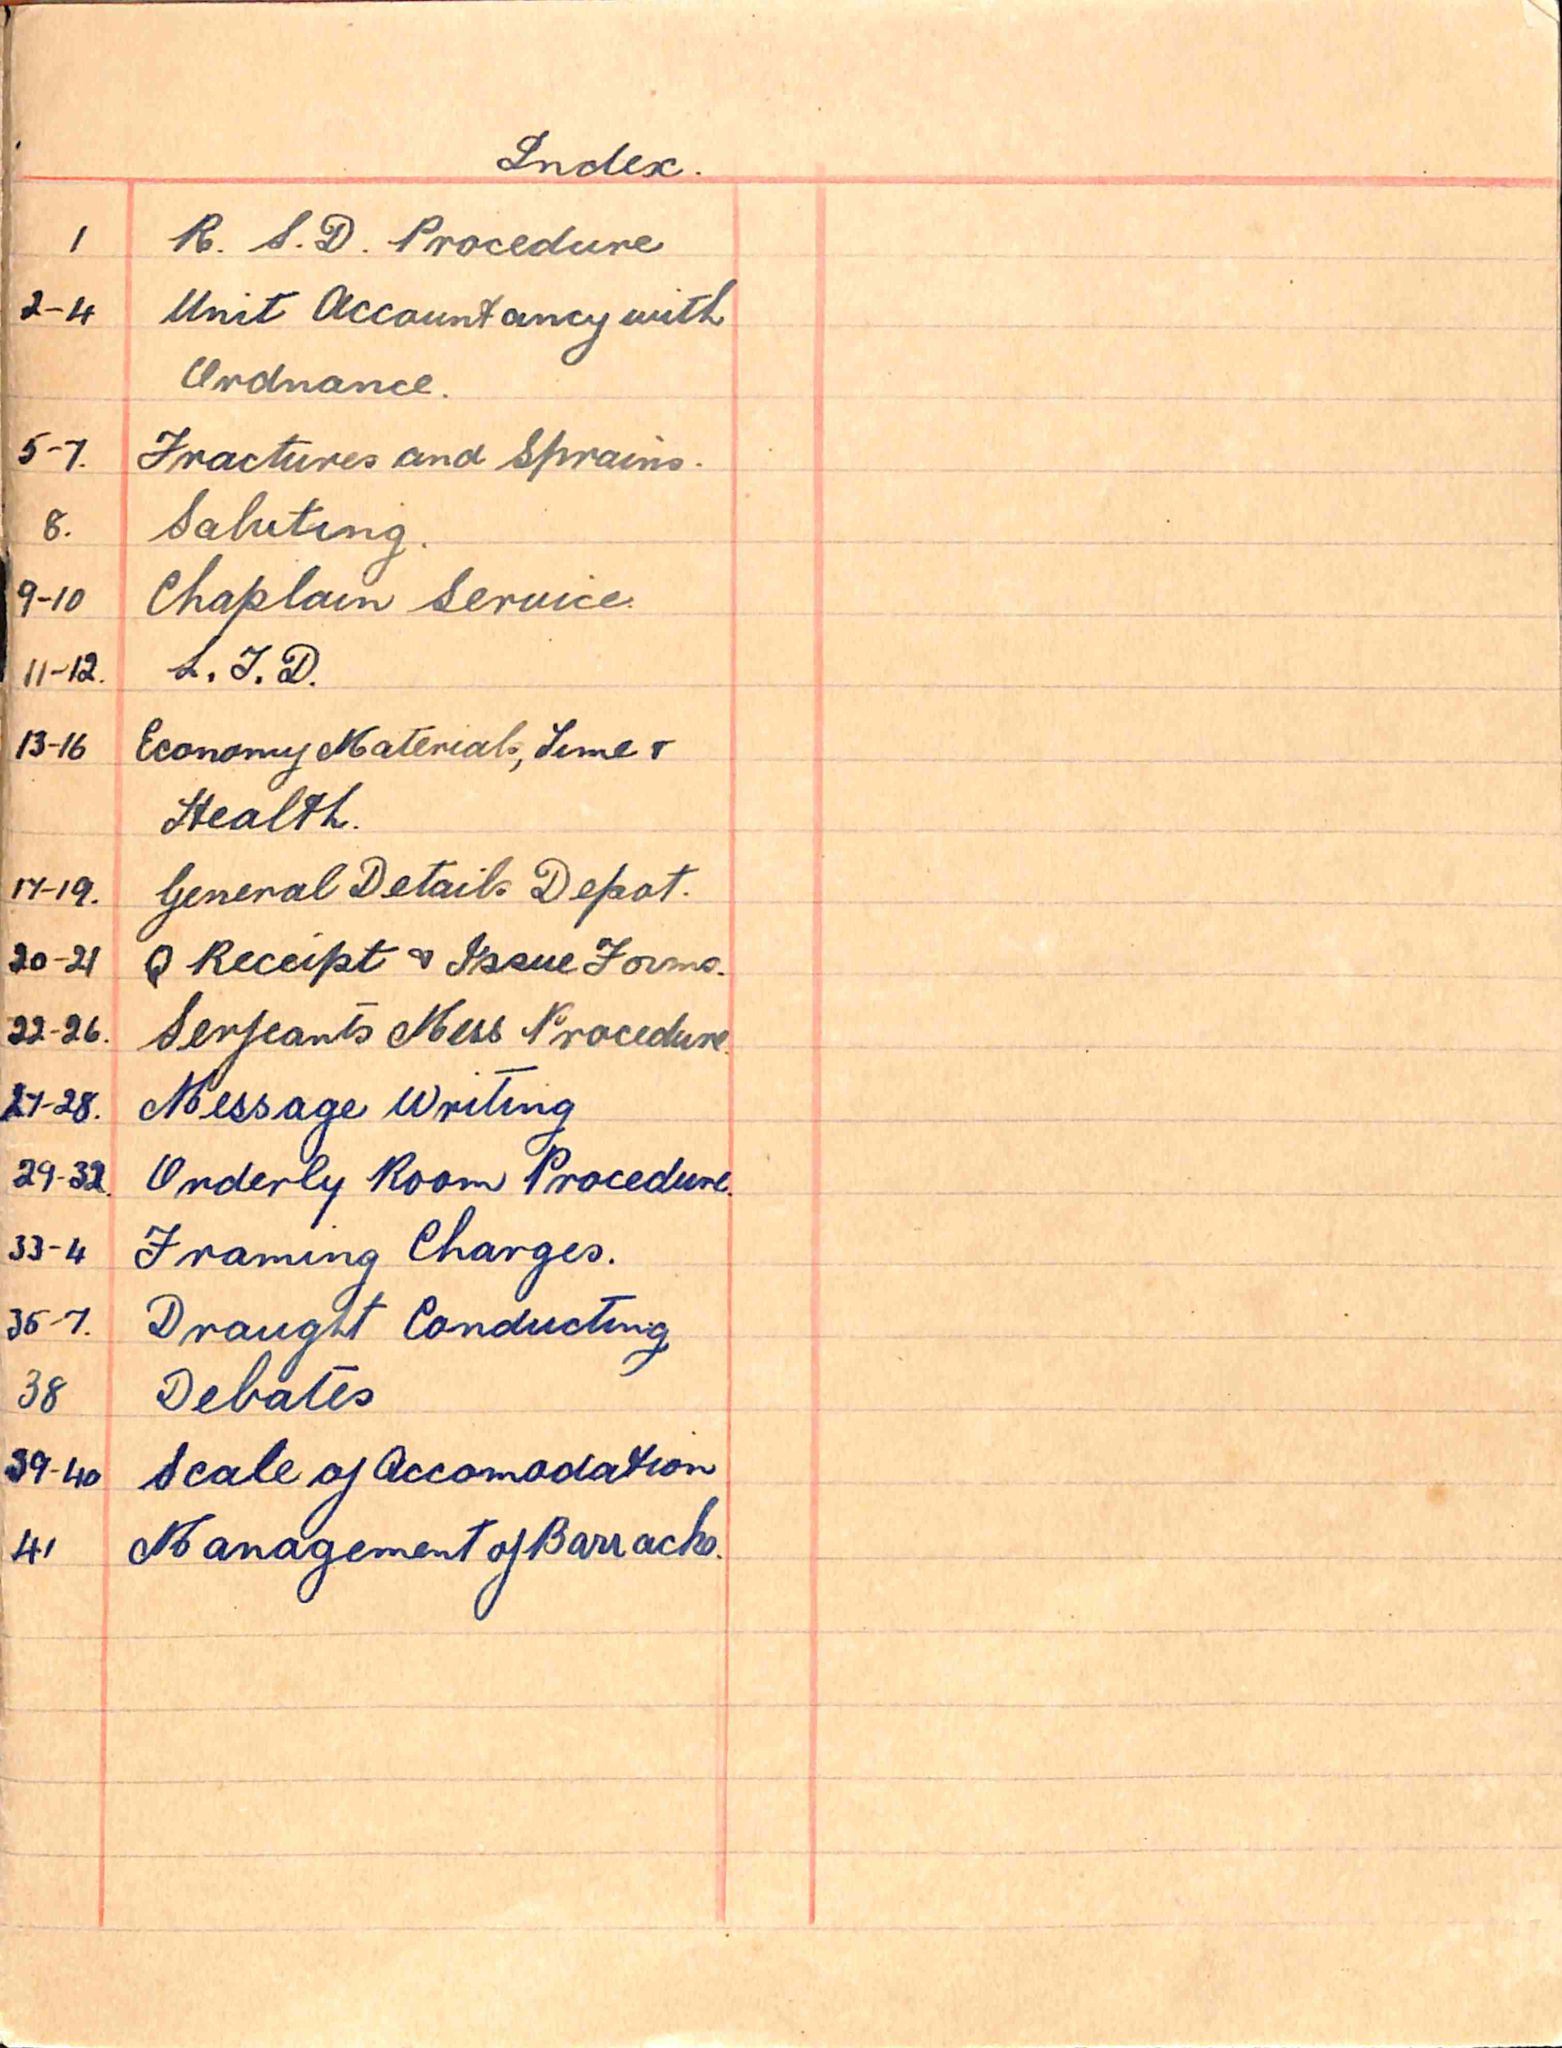 Index.
1 R. S. D. Procedure
2-4 Unit Accountancy with
Ordnance.
5-7. Fractures and Sprains.
8. Saluting.
9-10 Chaplain Service.
11-12. L. T. D.
13-16 Economy Materials, Time &
Health.
17-19. General Details Depot.
20-21 Q Receipt & Issue Forms.
22-26. Serjeants Mess Procedure.
27-28. Message Writing
29-32. Orderly Room Procedure.
33-4 Framing Charges.
35-7. Draught Conducting
38 Debates
39-40 Scale of Accomodation
41 Management of Barracks.